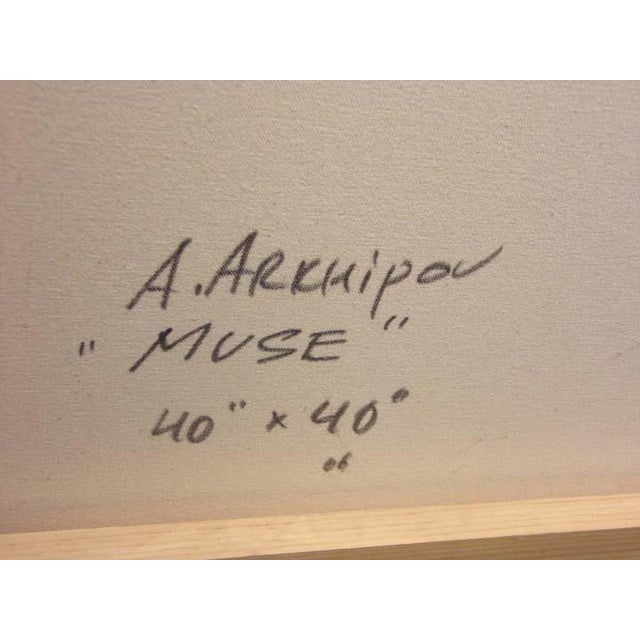 A. ARKHIPOV
"MUSE"
40" x 40"
06